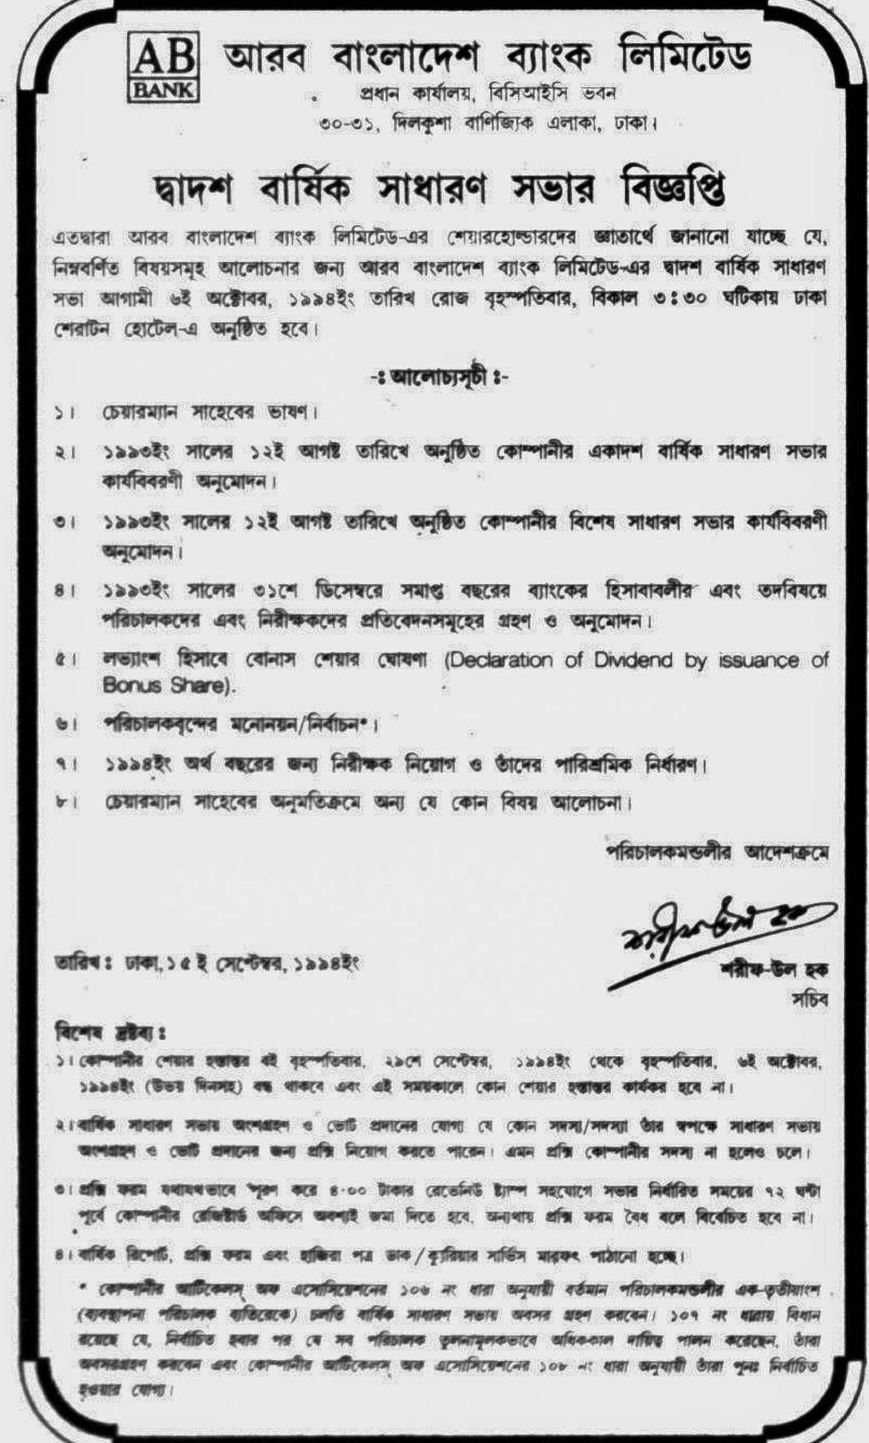 AB
BANK
আরব বাংলাদেশ ব্যাংক লিমিটেড
প্রধান কার্যালয়, বিসিআইসি ভবন
৩০-৩১, দিলকুশা বাণিজ্যিক এলাকা, ঢাকা।
দ্বাদশ বার্ষিক সাধারণ সভার বিজ্ঞপ্তি
এতদ্বারা আরব বাংলাদেশ ব্যাংক লিমিটেড-এর শেয়ারহোল্ডারদের জ্ঞাতার্থে জানানো যাচ্ছে যে,
নিম্নবর্ণিত বিষয়সমূহ আলোচনার জন্য আরব বাংলাদেশ ব্যাংক লিমিটেড-এর দ্বাদশ বার্ষিক সাধারণ
সভা আগামী ৬ই অক্টোবর, ১৯৯৪ইং তারিখ রোজ বৃহস্পতিবার, বিকাল ৩ঃ৩০ ঘটিকায় ঢাকা
শেরাটন হোটেল-এ অনুষ্ঠিত হবে।
-ঃ আলোচ্যসূচী ঃ-
১। চেয়ারম্যান সাহেবের ভাষণ।
২। ১৯৯৩ইং সালের ১২ই আগষ্ট তারিখে অনুষ্ঠিত কোম্পানীর একাদশ বার্ষিক সাধারণ সভার
কার্যবিবরণী অনুমোদন।
৩। ১৯৯৩ইং সালের ১২ই আগষ্ট তারিখে অনুষ্ঠিত কোম্পানীর বিশেষ সাধারণ সভার কার্যবিবরণী
অনুমোদন।
৪। ১৯৯৩ইং সালের ৩১শে ডিসেম্বরে সমাপ্ত বছরের ব্যাংকের হিসাবাবলীর এবং তদবিষয়ে
পরিচালকদের এবং নিরীক্ষকদের প্রতিবেদনসমূহের গ্রহণ ও অনুমোদন।
৫। লভ্যাংশ হিসাবে বোনাস শেয়ার ঘোষণা (Declaration of Dividend by issuance of
Bonus Share).
৬। পরিচালকবৃন্দের মনোনয়ন/নির্বাচন*।
৭। ১৯৯৪ইং অর্থ বছরের জন্য নিরীক্ষক নিয়োগ ও তাঁদের পারিশ্রমিক নির্ধারণ।
৮। চেয়ারম্যান সাহেবের অনুমতিক্রমে অন্য যে কোন বিষয় আলোচনা।
পরিচালকমন্ডলীর আদেশক্রমে
শরীফ উল হক
তারিখ ঃ ঢাকা, ১৫ ই সেপ্টেম্বর, ১৯৯৪ইং
শরীফ-উল হক
সচিব
বিশেষ দ্রষ্টব্য ঃ
১। কোম্পানীর শেয়ার হস্তান্তর বই বৃহস্পতিবার, ২৯শে সেপ্টেম্বর, ১৯৯৪ইং থেকে বৃহস্পতিবার, ৬ই অক্টোবর,
১৯৯৪ইং (উভয় দিনসহ) বন্ধ থাকবে এবং এই সময়কালে কোন শেয়ার হস্তান্তর কার্যকর হবে না।
২। বার্ষিক সাধারণ সভায় অংশগ্রহণ ও ভোট প্রদানের যোগ্য যে কোন সদস্য/সদস্যা তাঁর স্বপক্ষে সাধারণ সভায়
অংশগ্রহণ ও ভোট প্রদানের জন্য প্রক্সি নিয়োগ করতে পারেন। এমন প্রক্সি কোম্পানীর সদস্য না হলেও চলে।
৩। প্রক্সি ফরম যথাযথভাবে পূরণ করে ৪.০০ টাকার রেভেনিউ ষ্ট্যাম্প সহযোগে সভার নির্ধারিত সময়ের ৭২ ঘন্টা
পূর্বে কোম্পানীর রেজিষ্টার্ড অফিসে অবশ্যই জমা দিতে হবে, অন্যথায় প্রক্সি ফরম বৈধ বলে বিবেচিত হবে না।
৪। বার্ষিক রিপোর্ট, প্রক্সি ফরম এবং হাজিরা পত্র ডাক/কুরিয়ার সার্ভিস মারফৎ পাঠানো হচ্ছে।
* কোম্পানীর আর্টিকেলস্ অফ এসোসিয়েশনের ১০৬ নং ধারা অনুযায়ী বর্তমান পরিচালকমন্ডলীর এক-তৃতীয়াংশ
(ব্যবস্থাপনা পরিচালক ব্যতিরেকে) চলতি বার্ষিক সাধারণ সভায় অবসর গ্রহণ করবেন। ১০৭ নং ধারায় বিধান
রয়েছে যে, নির্বাচিত হবার পর যে সব পরিচালক তুলনামূলকভাবে অধিককাল দায়িত্ব পালন করেছেন, তাঁরা
অবসরগ্রহণ করবেন এবং কোম্পানীর আর্টিকেলস্ অফ এসোসিয়েশনের ১০৮ নং ধারা অনুযায়ী তাঁরা পুনঃ নির্বাচিত
হওয়ার যোগ্য।